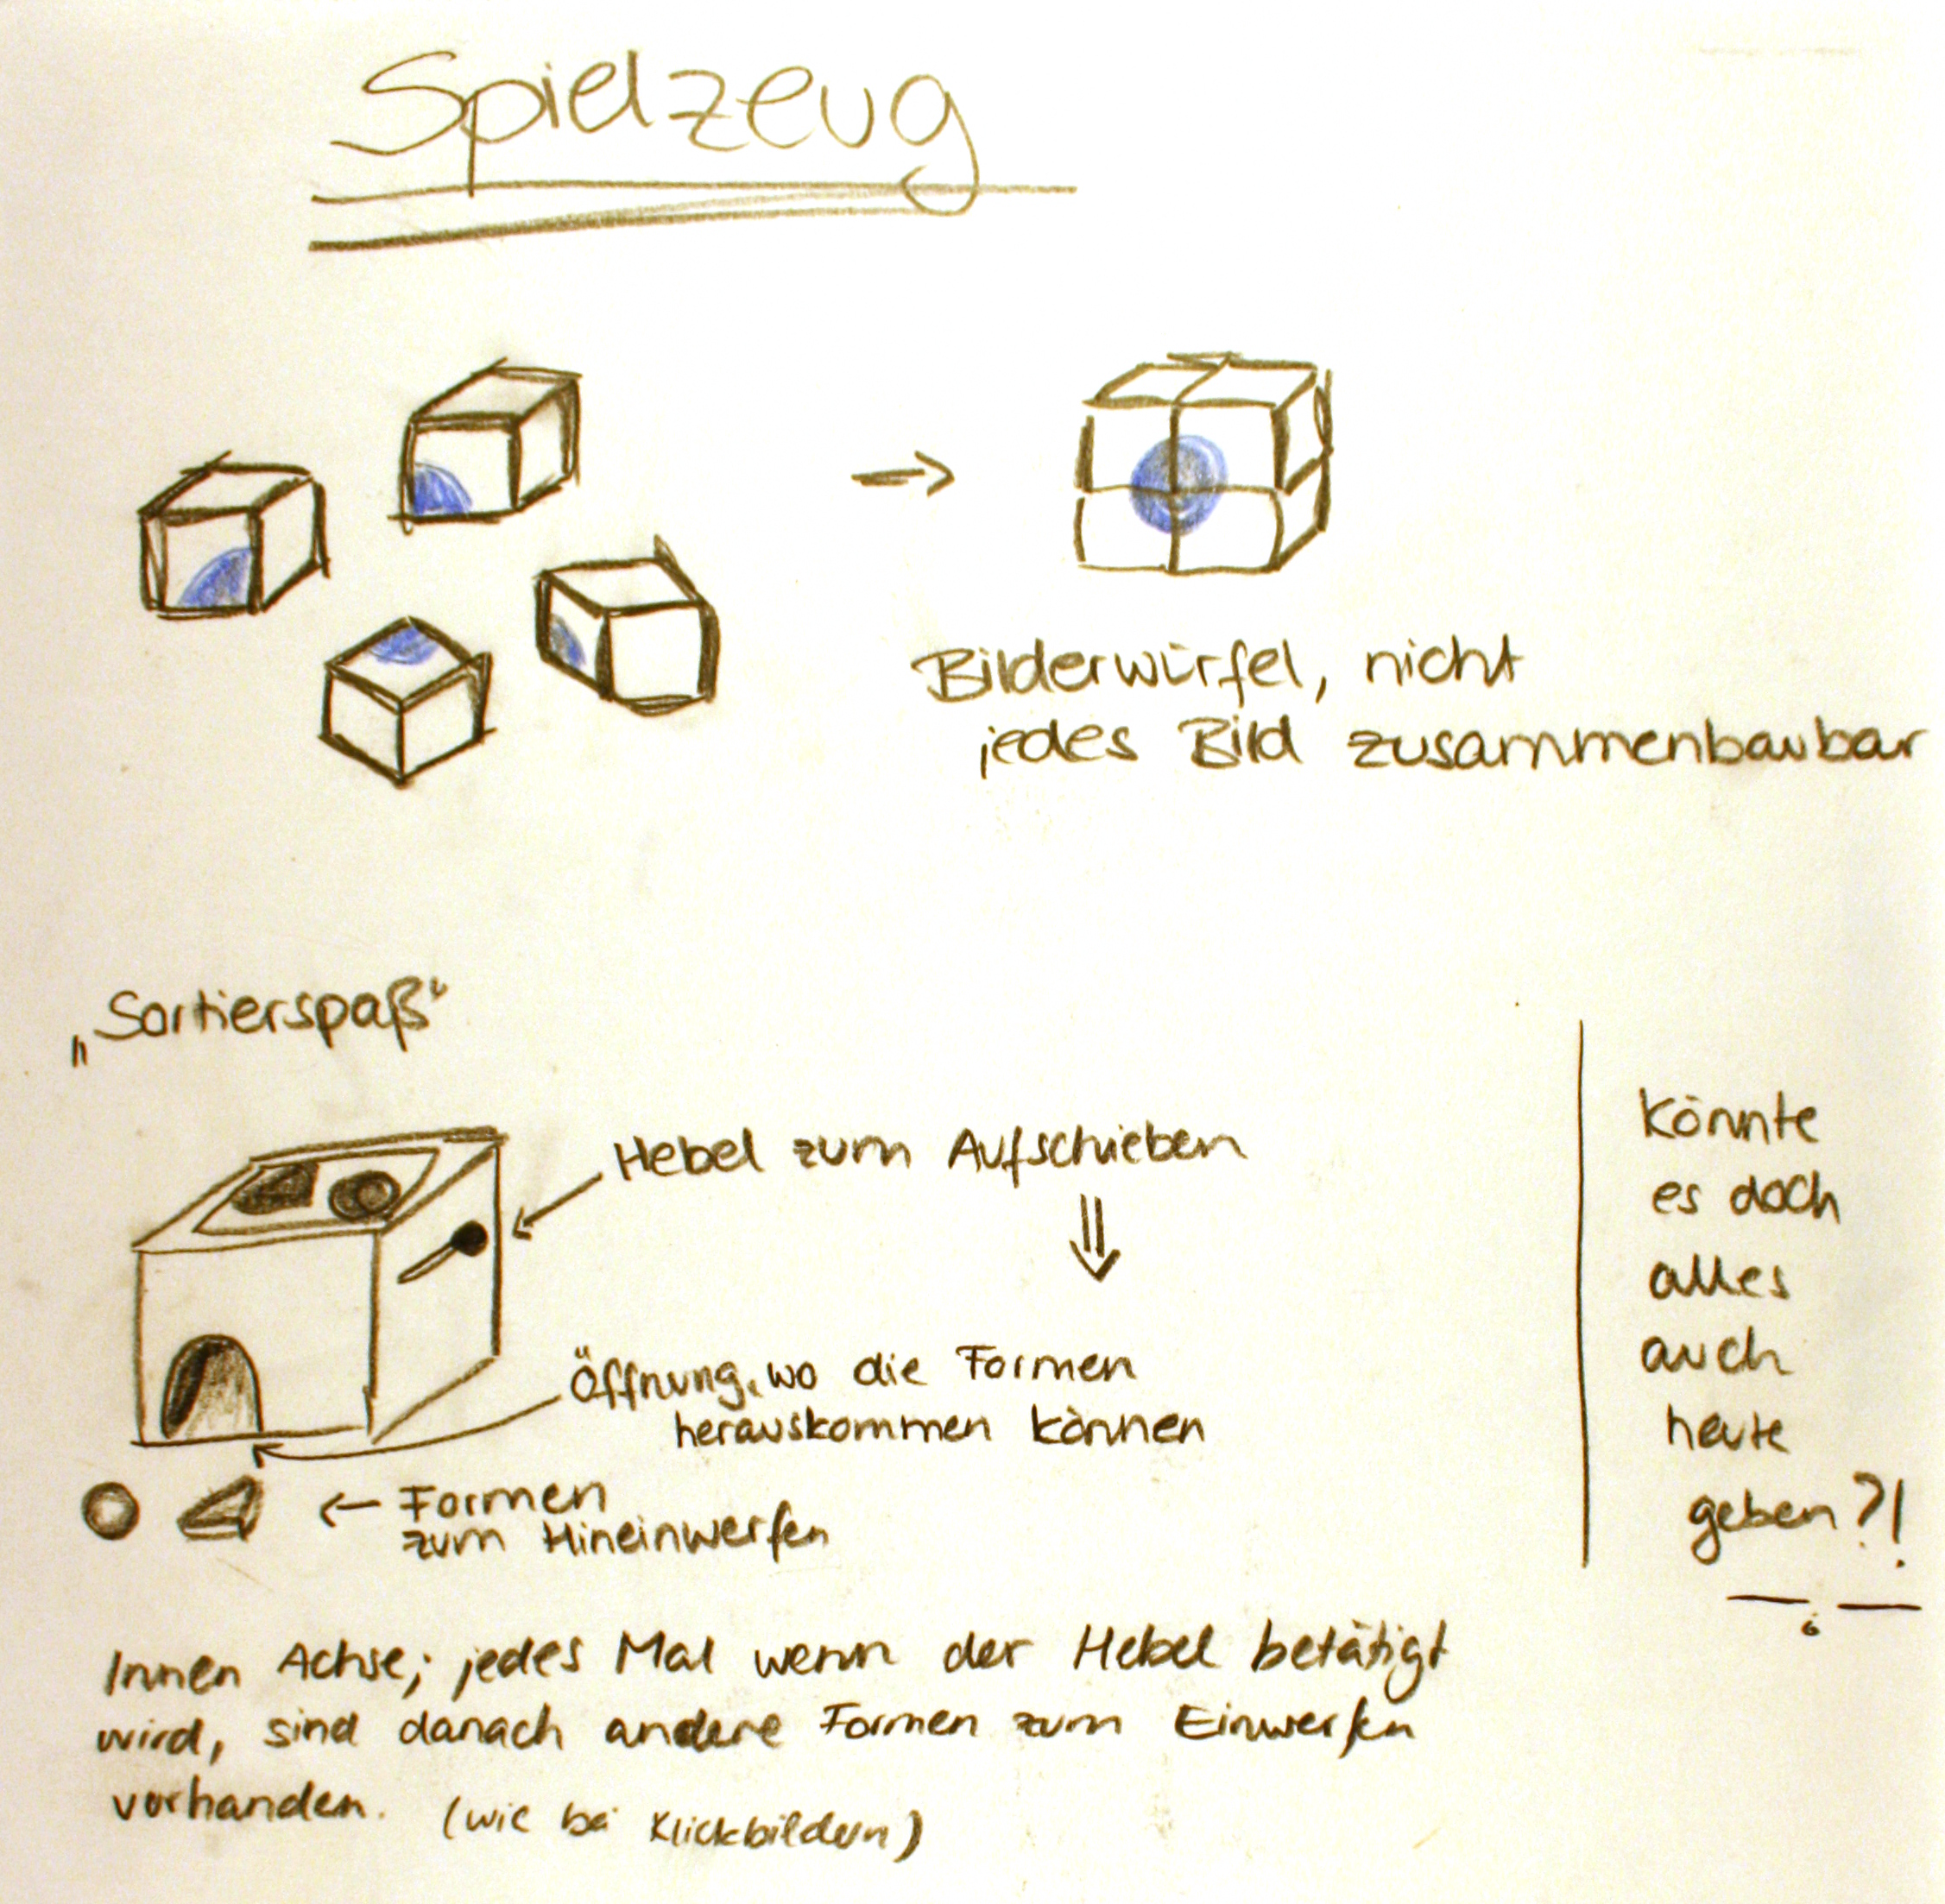 Spielzeug
Bilderwürfel, nicht
jedes Bild zusammenbaubar
„Sortierspaß“
Hebel zum Aufschieben
Öffnung, wo die Formen
herauskommen können
Formen
zum Hineinwerfen
Könnte
es doch
alles
auch
heute
geben?!
Innen Achse; jedes Mal wenn der Hebel betätigt
wird, sind danach andere Formen zum Einwerfen
vorhanden. (wie bei Klickbildern)